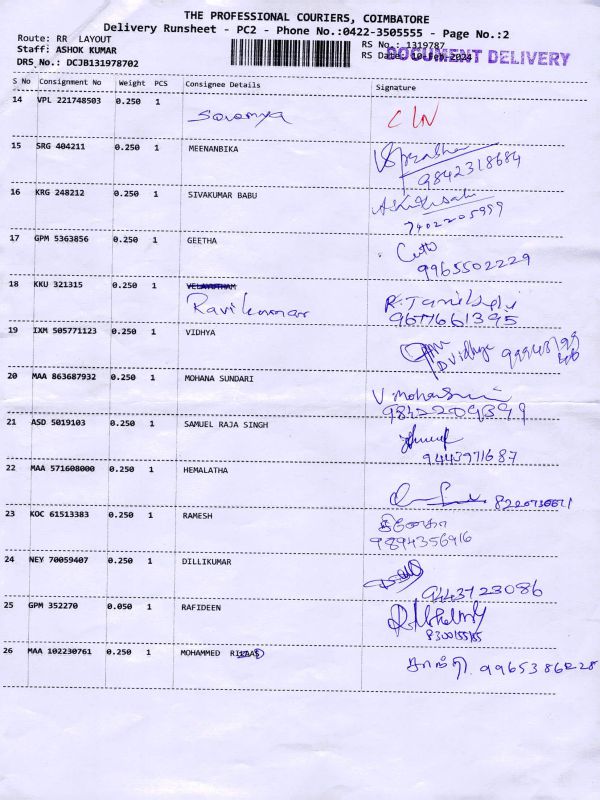 THE PROFESSIONAL COURIERS, COIMBATORE
Delivery Runsheet - PC2 - Phone No.:0422-3505555 - Page No.:2
Route: RR LAYOUT
RS No.: 1319787
Staff: ASHOK KUMAR
RS Date: 10-Feb-2024
DOCUMENT DELIVERY
DRS No.: DCJB131978702
S No Consignment No Weight PCS Consignee Details Signature
14 VPL 221748503 0.250 1 Sowmya
15 SRG 404211 0.250 1 MEENANBIKA
9842318684
16 KRG 248212 0.250 1 SIVAKUMAR BABU
7402205999
17 GPM 5363856 0.250 1 GEETHA
9965502229
18 KKU 321315 0.250 1 VELAYUTHAM
Ravikumar R. Tamilselvi
9677661395
19 IXM 505771123 0.250 1 VIDHYA D Vidhya
20 MAA 863687932 0.250 1 MOHANA SUNDARI
21 ASD 5019103 0.250 1 SAMUEL RAJA SINGH
9443971687
22 MAA 571608000 0.250 1 HEMALATHA
23 KOC 61513383 0.250 1 RAMESH
9894356916
24 NEY 70059407 0.250 1 DILLIKUMAR
9443723086
25 GPM 352270 0.050 1 RAFIDEEN
26 MAA 102230761 0.250 1 MOHAMMED